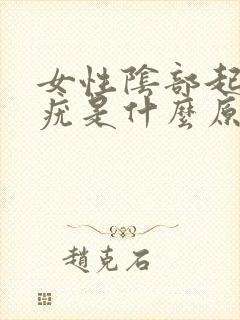 女性陰部起
疣是什麼原
趙克石